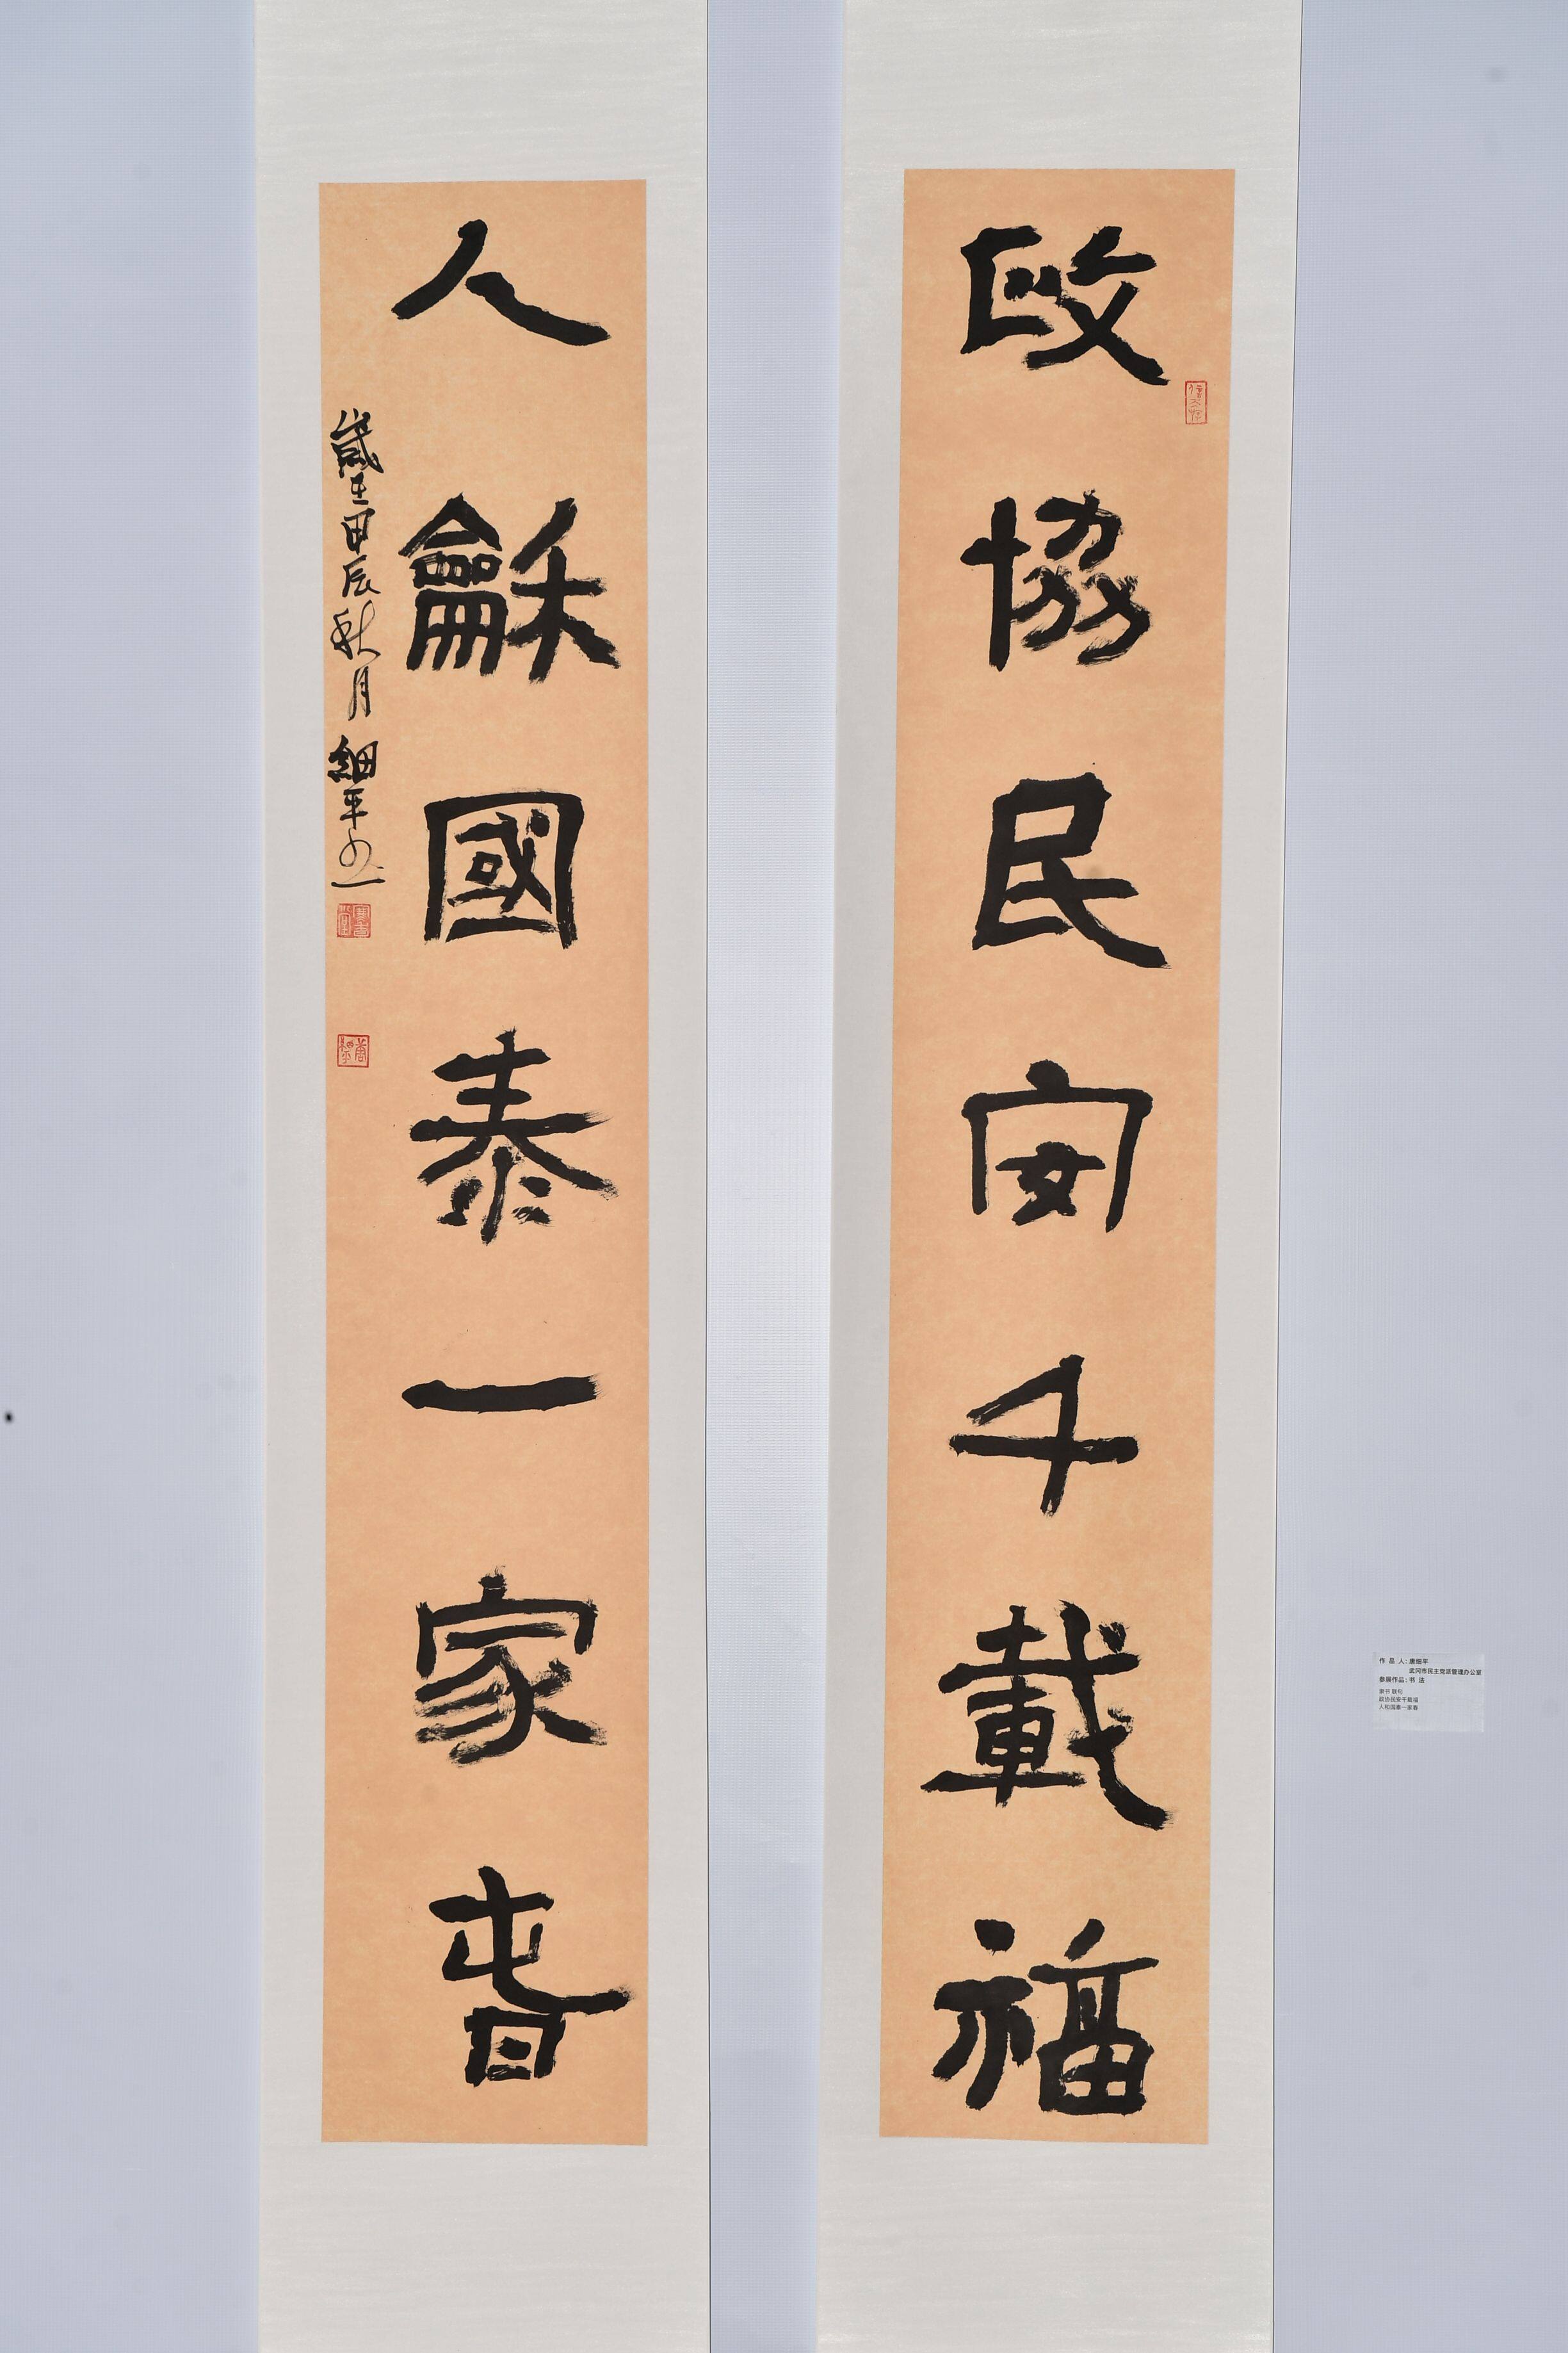 政協民安千載福
人龢國泰一家春
歲在甲辰秋月細平書
作品人：唐细平
武冈市民主党派管理办公室
参展作品：书 法
隶书 联句
政协民安千载福
人和国泰一家春